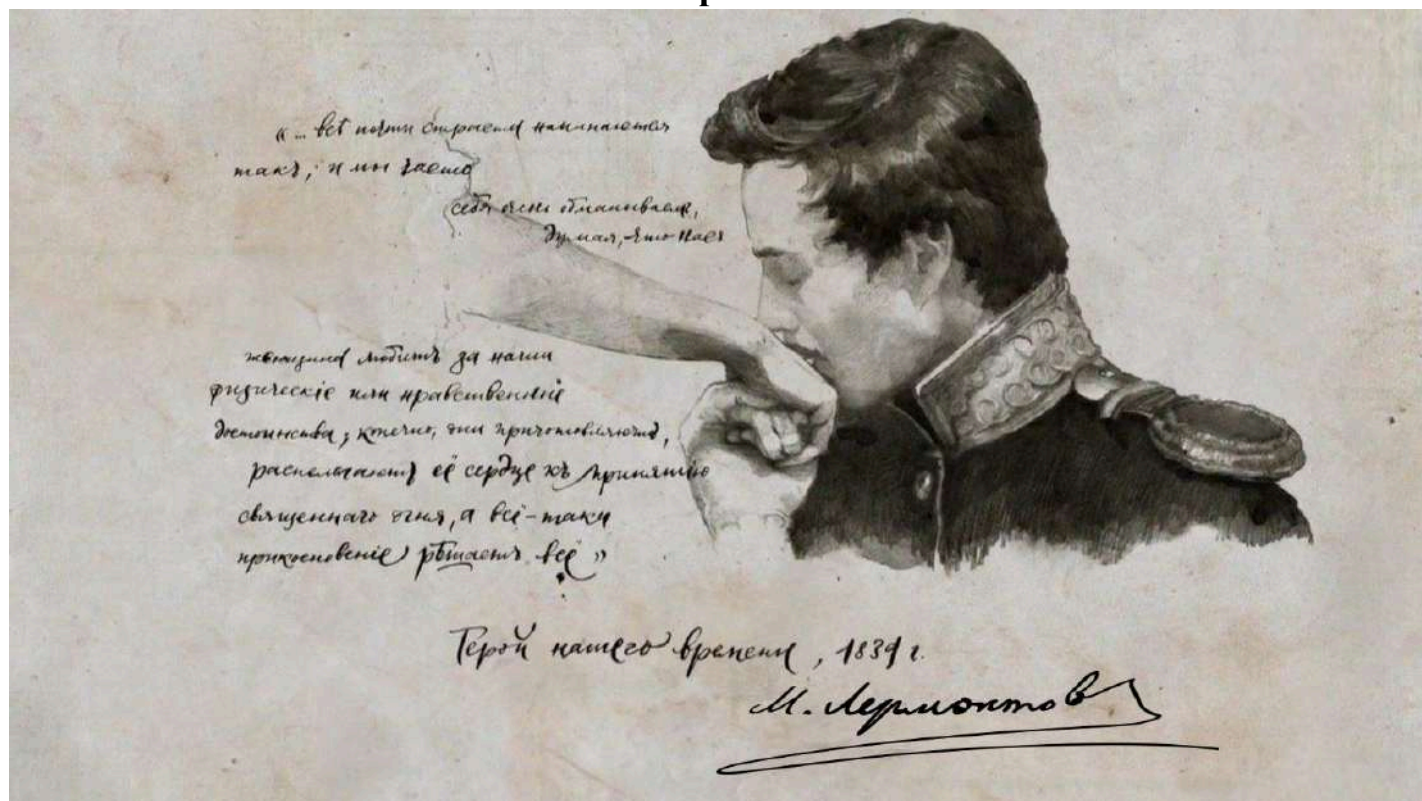 «... всѣ почти страсти начинаются
такъ, и мы часто
себя очень обманываемъ,
думая, что насъ
женщина любитъ за наши
физическіе или нравственныіе
достоинства; конечно, они приготовляютъ,
располагаютъ её сердце къ принятію
священнаго огня, а всё-таки
прикосновеніе рѣшаетъ всё»
Герой нашего времени, 1839 г.
М. Лермонтов